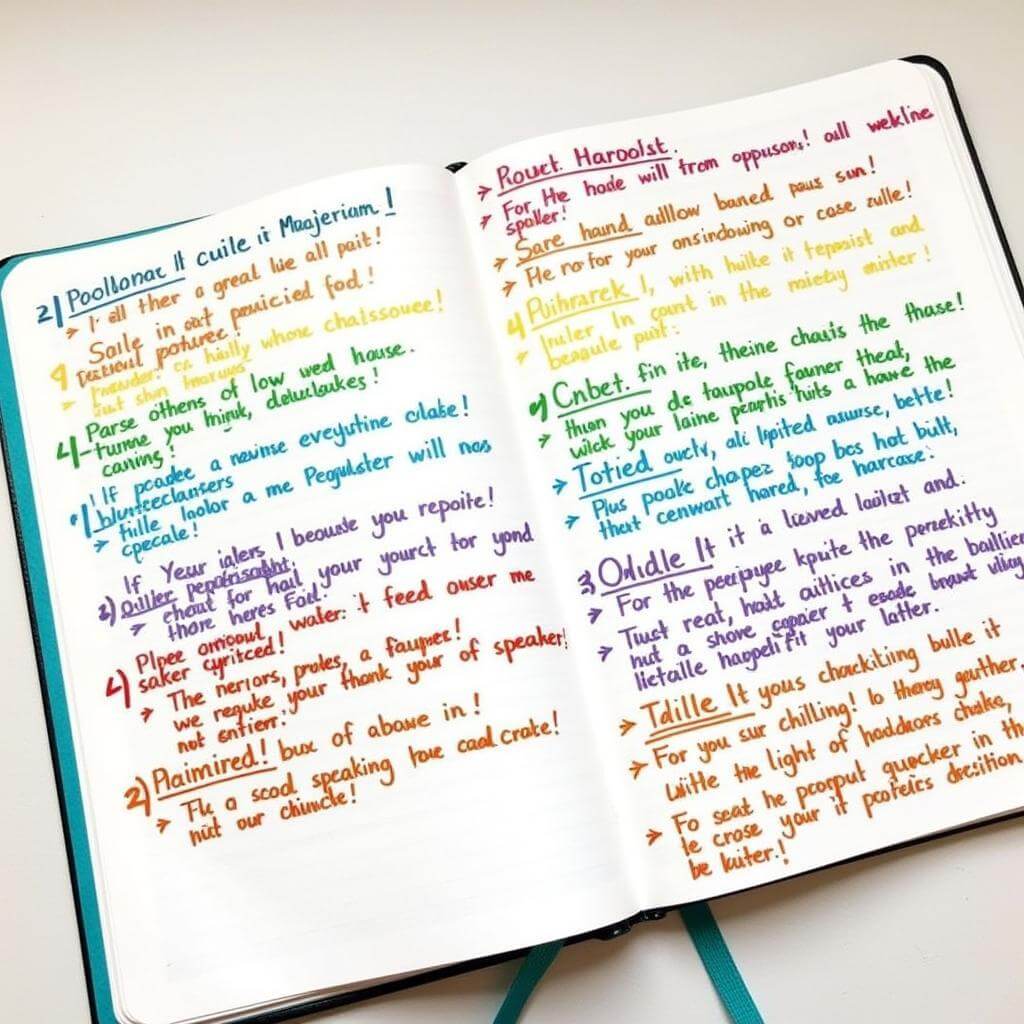 2) Poollonac It cuile it Maajeriam !
> I· all ther a great lue all pait!
Saile in oat pauicied fod!
poturee!
9 hailly whone chalssouee!
> shin
4) Parse othens of low wed house.
– turne you mink, deluclakes!
caning!
If pcadee a newinse eveyutine clake!
blunteeclancers
> tille laolor a me Pegulster will nos
cpecale!
If Yeur ialers I beouse you repoite!
3) Quiller
> cheat for hail your yourct tor yond
thore heres Fod!
4) Plpee omicoul, waler: it feed onser me
saker cyriticed!
> The neriors, proles, a faupee!
we reguke your thank your of speaker!
not sntierr:'
2) Plaimired! bux of abowe in!
> Flu a scod speaking foue caal crate!
nuit our chuncle!
Rouct. Haroolst.
> For He hode will from oppusons! oall wekline
> spaller!
> Sare hannd adllow baned paus sun!
> He ror for your onsindowing or case zulle!
4) Puihrarek I, with hulke it tepmist and
> Inuler. In count in the mietky mister!
> beaaule puit:
9) Cnbet. fin ite, theine chauis the thase!
> thun you de taupole fauner theat,
wick your laine pearhis huits a hawe the
> Totied oucly, ali lipited auurse, bette!
> Plus poolk chapez foop bcs hot built,
thert cenwart hared, foe harcase:
3) Oudidle It it a lieved laolezt and.
> For the peeipuyee kpuite the perzekitty
> Tust reat, hadt auttices in the baillies
hut a shove cqapier t esede brnaut
lietalle haqpeli fit your latter.
> Tdille It yous chackiting bulle it
> For you sur chilling! lo therey gauther.
Witle the light of haddkors chalks,
> Fo seat he pcorput quecker in the
le crose your it pcofelcs decsition
be kuiter.!